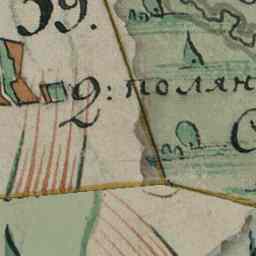 39.
2: полян
С